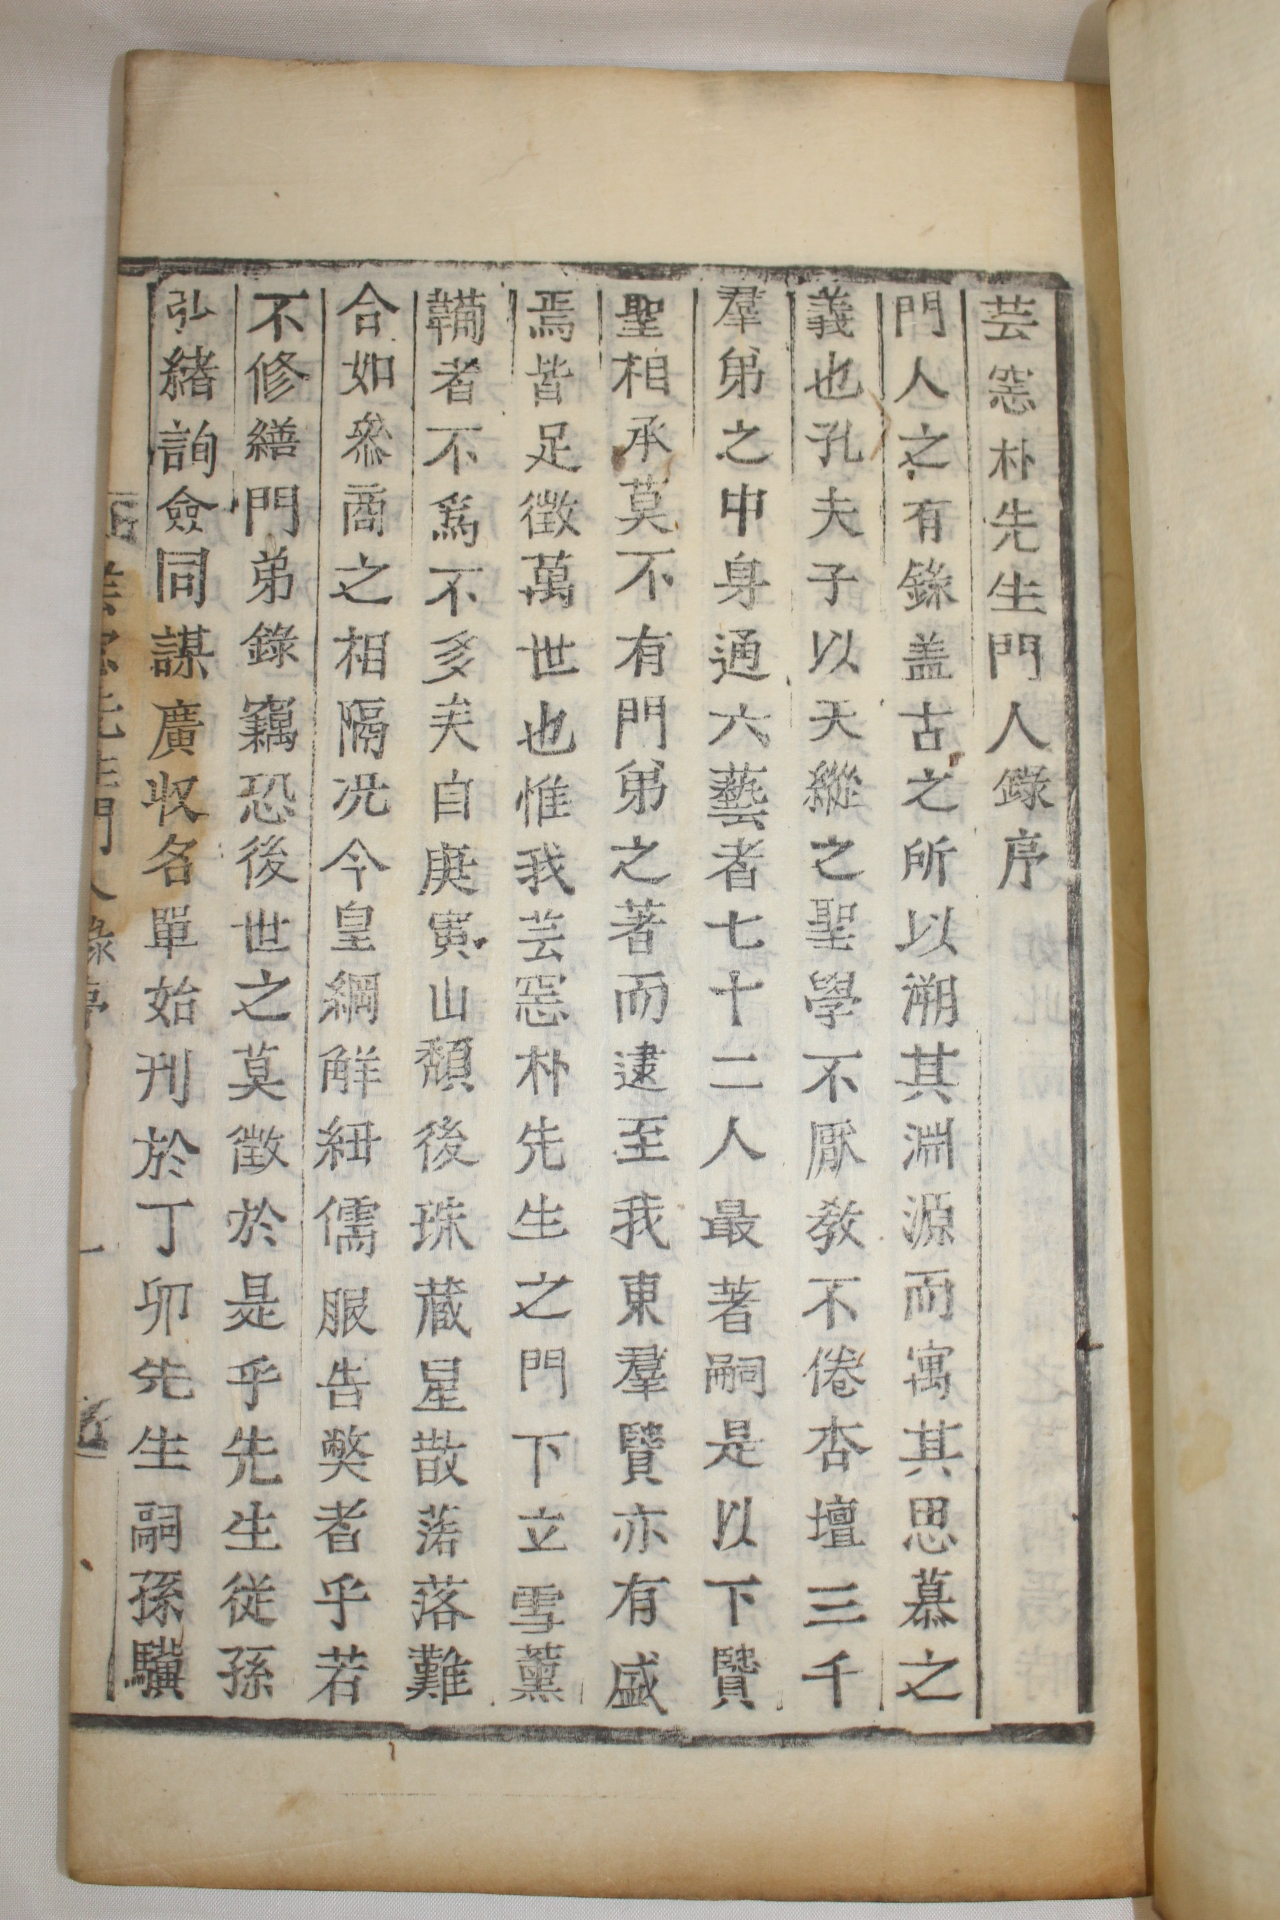 芸窓朴先生門人錄序
門人之有錄盖古之所以溯其淵源而寓其思慕之
義也孔夫子以天縱之聖學不厭敎不倦杏壇三千
羣弟之中身通六藝者七十二人最著嗣是以下賢
聖相承莫不有門弟之著而逮至我東羣賢亦有盛
焉皆足徵萬世也惟我芸窓朴先生之門下立雪薰
鞴者不爲不多矣自庚寅山頹後珠蔵星散落落難
合如叅商之相隔况今皇綱解紐儒服告獘者乎若
不修繕門弟錄竊恐後世之莫徵於是乎先生従孫
弘緖詢僉同謀廣収名單始刊於丁卯先生嗣孫驥
芸窓先生門人錄序 一